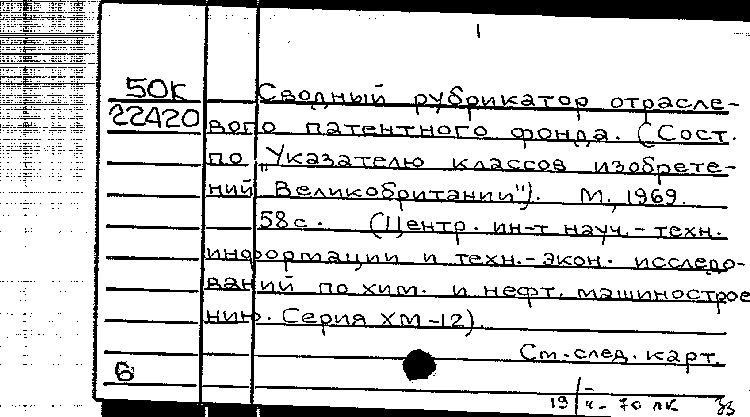 50К
22420
Сводный рубрикатор отрасле-
вого патентного фонда. (Сост.
по „Указателю классов изобрете-
ний Великобритании"). М., 1969.
58 с. (Центр. ин-т науч.-техн.
информации и техн.-экон. исследо-
ваний по хим. и нефт. машинострое
нию. Серия ХМ-12).
См. след. карт.
6